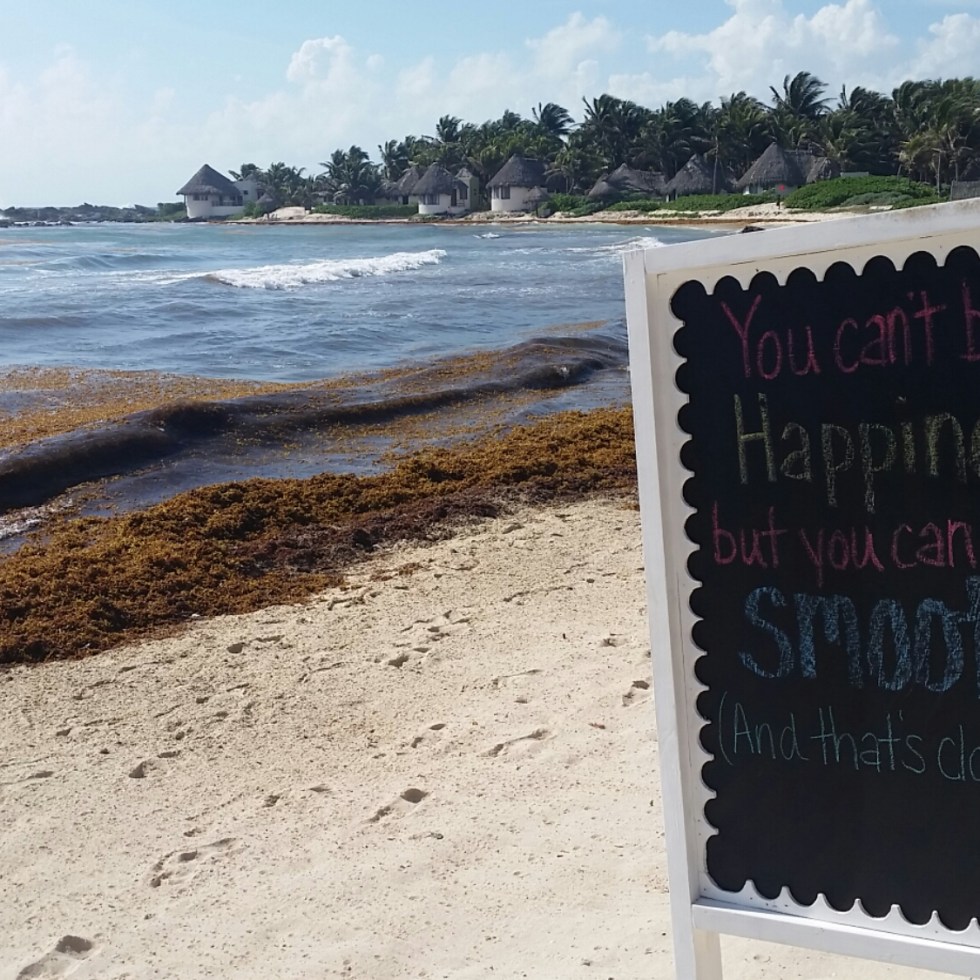 You can't
Happin
but you can
smoot
(And that's clo